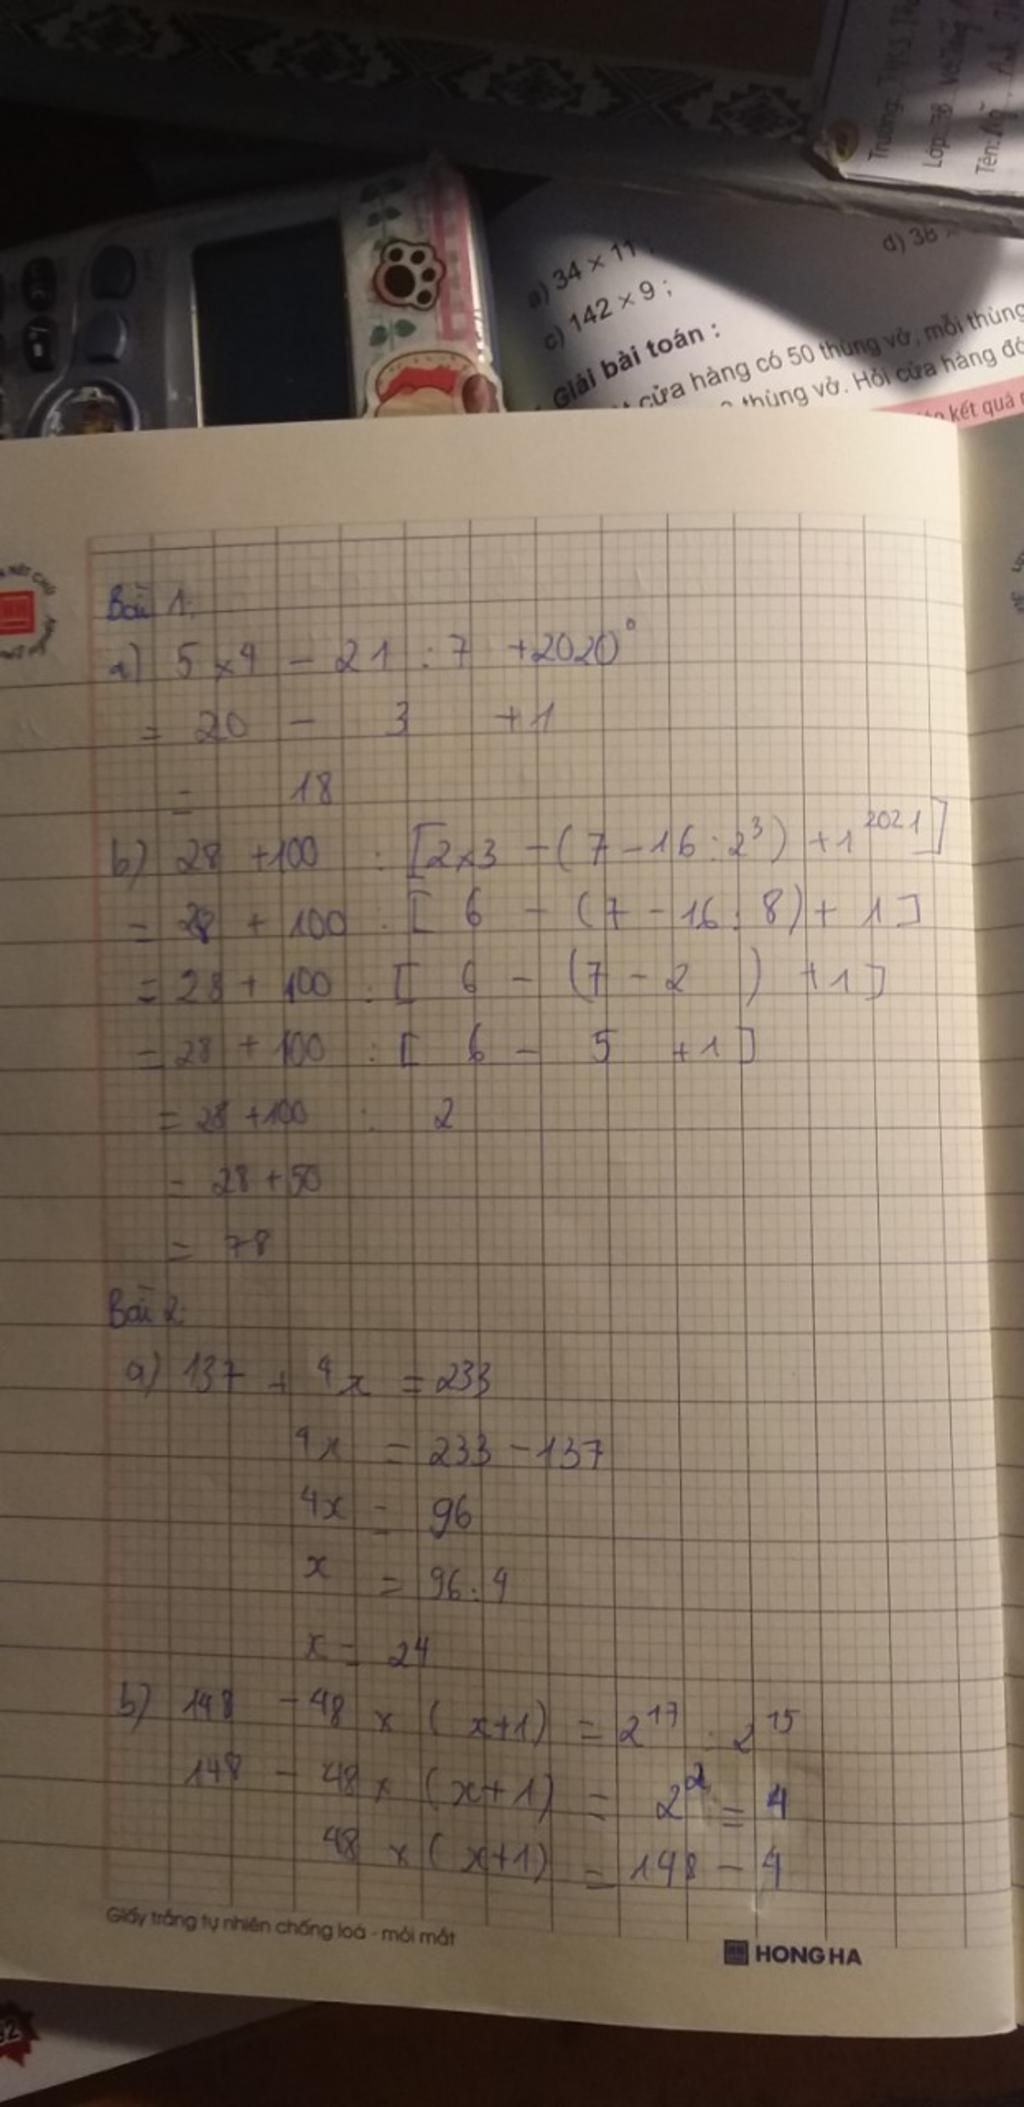 Trường: THCS
Lớp:
Tên:
a) 34 × 11 ;
d) 36 ×
c) 142 × 9 ;
Giải bài toán :
cửa hàng có 50 thùng vở, mỗi thùng
thùng vở. Hỏi cửa hàng đó
kết quả
NÉT CHỮ
Bài 1:
a) 5 x 4 - 21 : 7 + 2020⁰
= 20 - 3 + 1
= 18
b) 28 + 100 : [2 x 3 - (7 - 16 : 2³) + 1²⁰²¹]
= 28 + 100 : [ 6 - (7 - 16 : 8) + 1 ]
= 28 + 100 : [ 6 - (7 - 2 ) + 1 ]
= 28 + 100 : [ 6 - 5 + 1 ]
= 28 + 100 : 2
= 28 + 50
= 78
Bài 2:
a) 137 + 4x = 233
4x = 233 - 137
4x = 96
x = 96 : 4
x = 24
b) 148 - 48 x ( x+1) = 2¹⁷ : 2¹⁵
148 - 48 x (x+1) = 2² = 4
48 x (x+1) = 148 - 4
Giấy trắng tự nhiên chống loá - mỏi mắt
HONG HA
32